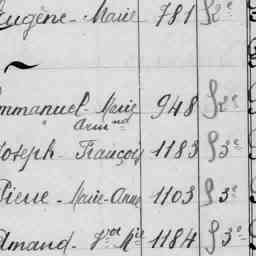 Eugène - Marie 781 S 2e
~
Emmanuel Marie 948 S 2e
Armnd
Joseph - François 1183 S 3e
Pierre - Marie-Ange 1103 S 3e
Amand - Mie 1184 S 3e